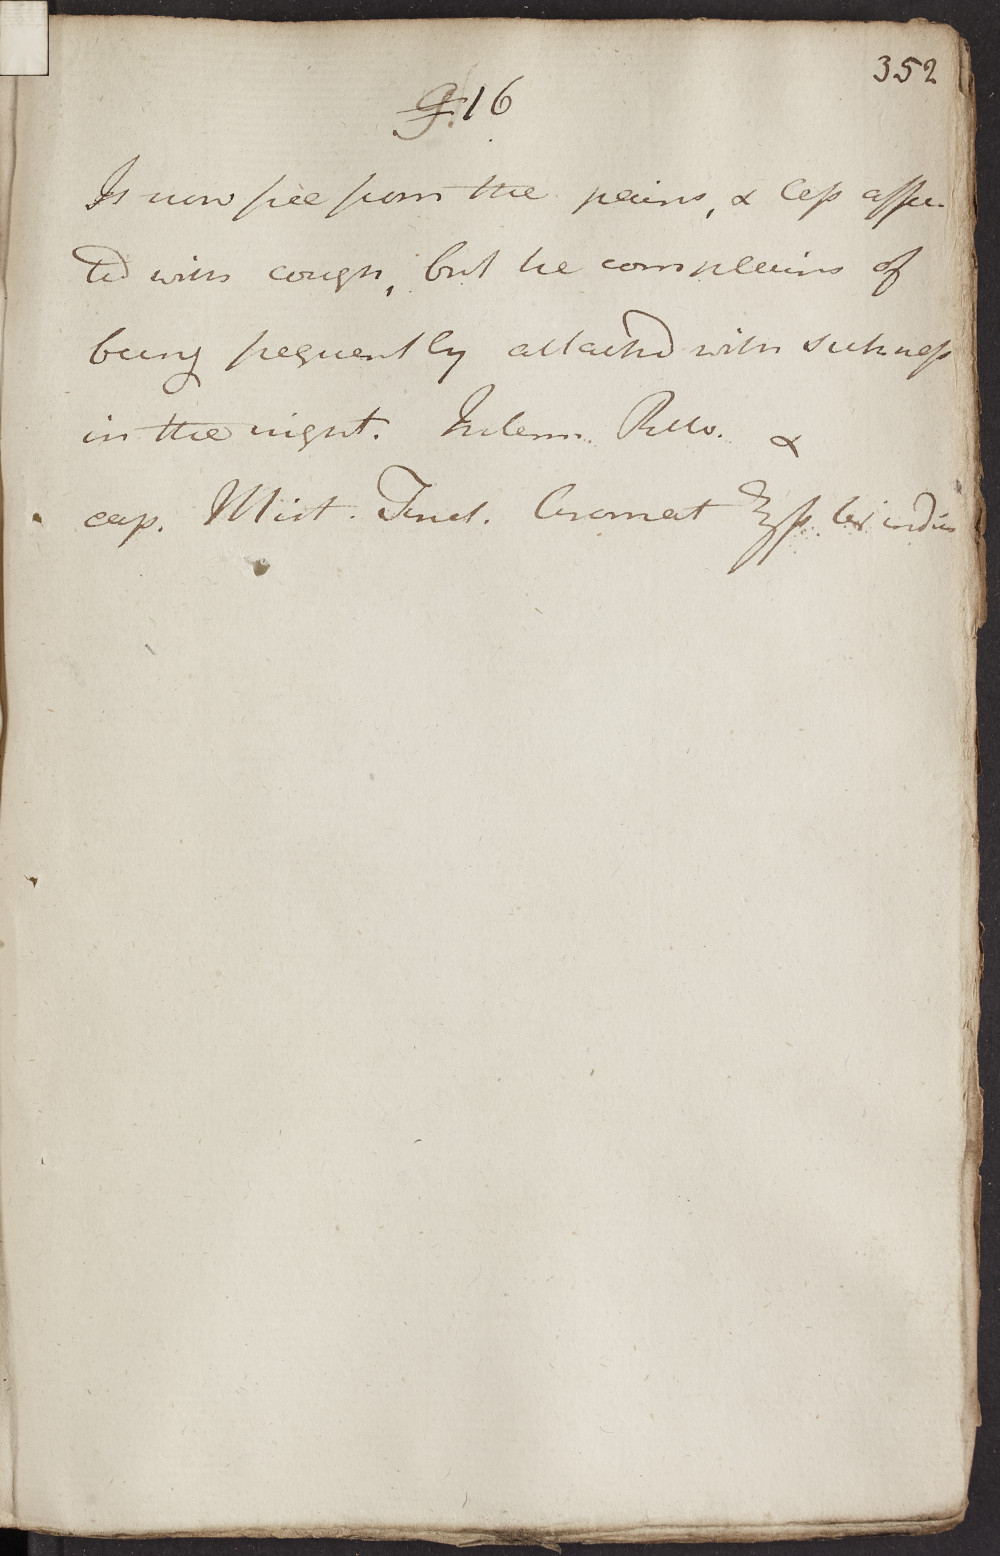 352
J. 16
Is now free from the pains, & less affec-
ted with cough, but he complains of
being frequently attackd with sickness
in the night. Intern. Pulv. &
cap. Mist. Tinct. Aromat ℥ss bis indies